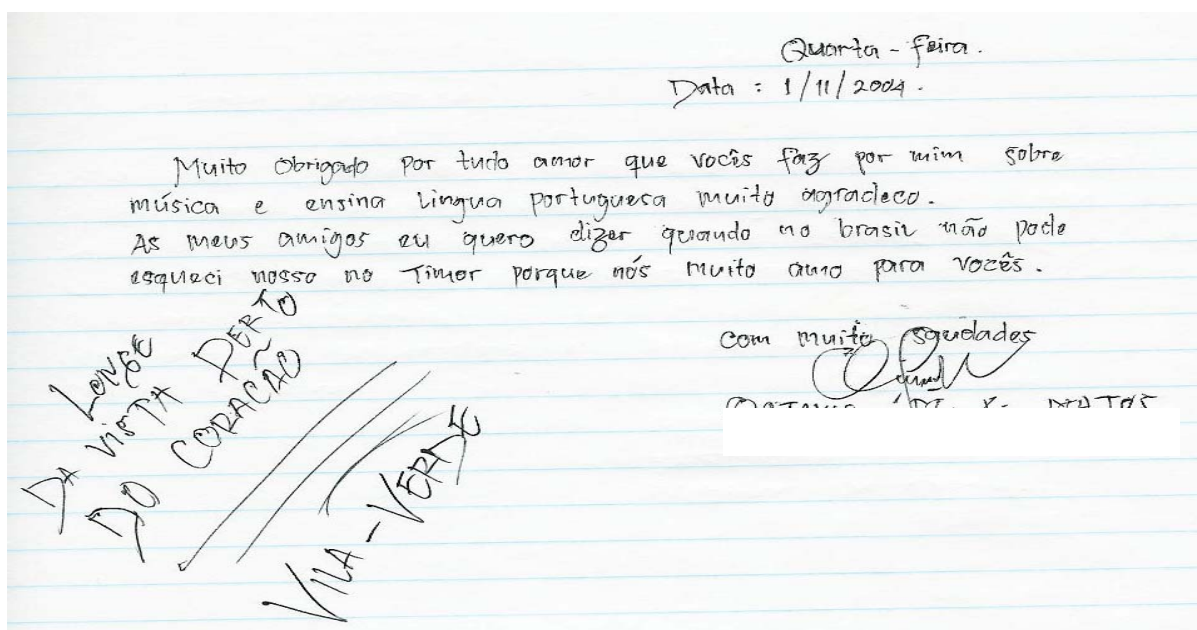 Quarta - feira.
Data : 1/11/2004.
Muito obrigado por tudo amor que vocês faz por mim sobre
música e ensina Lingua portuguesa muito agradeco.
As meus amigos eu quero dizer quando no brasil não pode
esqueci nosso no Timor porque nós muito amo para vocês.
com muito saudades
LONGE
DA VISTA PERTO
DO CORAÇÃO
VILA-VERDE